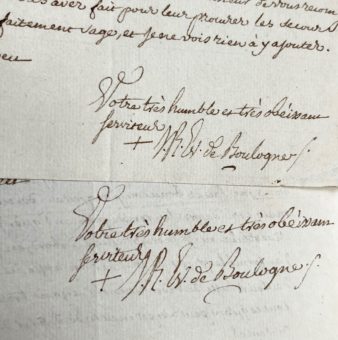 avoir fait pour leur procurer les secours
faitement sage, et je ne vois rien à y ajouter.
Votre très humble et très obéissant
serviteur
+ de Boulogne
Votre très humble et très obéissant
serviteur
+ de Boulogne